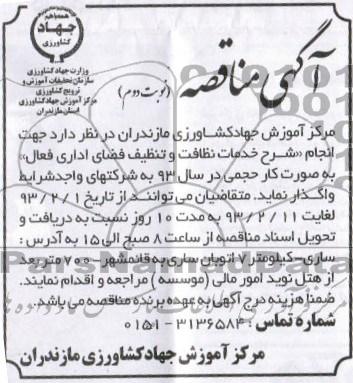 همه با هم
جهاد
کشاورزی
وزارت جهاد کشاورزی
سازمان تحقیقات آموزش و
ترویج کشاورزی
مرکز آموزش جهاد کشاورزی
استان مازندران
آگهی مناقصه
(نوبت دوم)
مرکز آموزش جهادکشاورزی مازندران در نظر دارد جهت
انجام «شرح خدمات نظافت و تنظیف فضای اداری فعال»
به صورت کار حجمی در سال ۹۳ به شرکتهای واجدشرایط
واگذار نماید. متقاضیان می توانند از تاریخ ۹۳/۲/۱
لغایت ۹۳/۲/۱۱ به مدت ۱۰ روز نسبت به دریافت و
تحویل اسناد مناقصه از ساعت ۸ صبح الی ۱۵ به آدرس :
ساری-کیلومتر ۷ اتوبان ساری به قائمشهر-۷۰۰ متر بعد
از هتل نوید امور مالی (موسسه) مراجعه و اقدام نمایند.
ضمنا هزینه درج آگهی به عهده برنده مناقصه می باشد.
شماره تماس : ۳۱۳۶۵۸۴-۰۱۵۱
مرکز آموزش جهاد کشاورزی مازندران